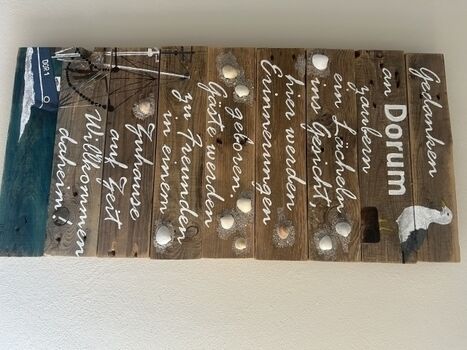 Gedanken
an Dorum
zaubern
ein Lächeln
ins Gesicht,
hier werden
Erinnerungen
geboren,
Gäste werden
zu Freunden
in einem
Zuhause
auf Zeit
Willkommen
daheim!
DOR 1